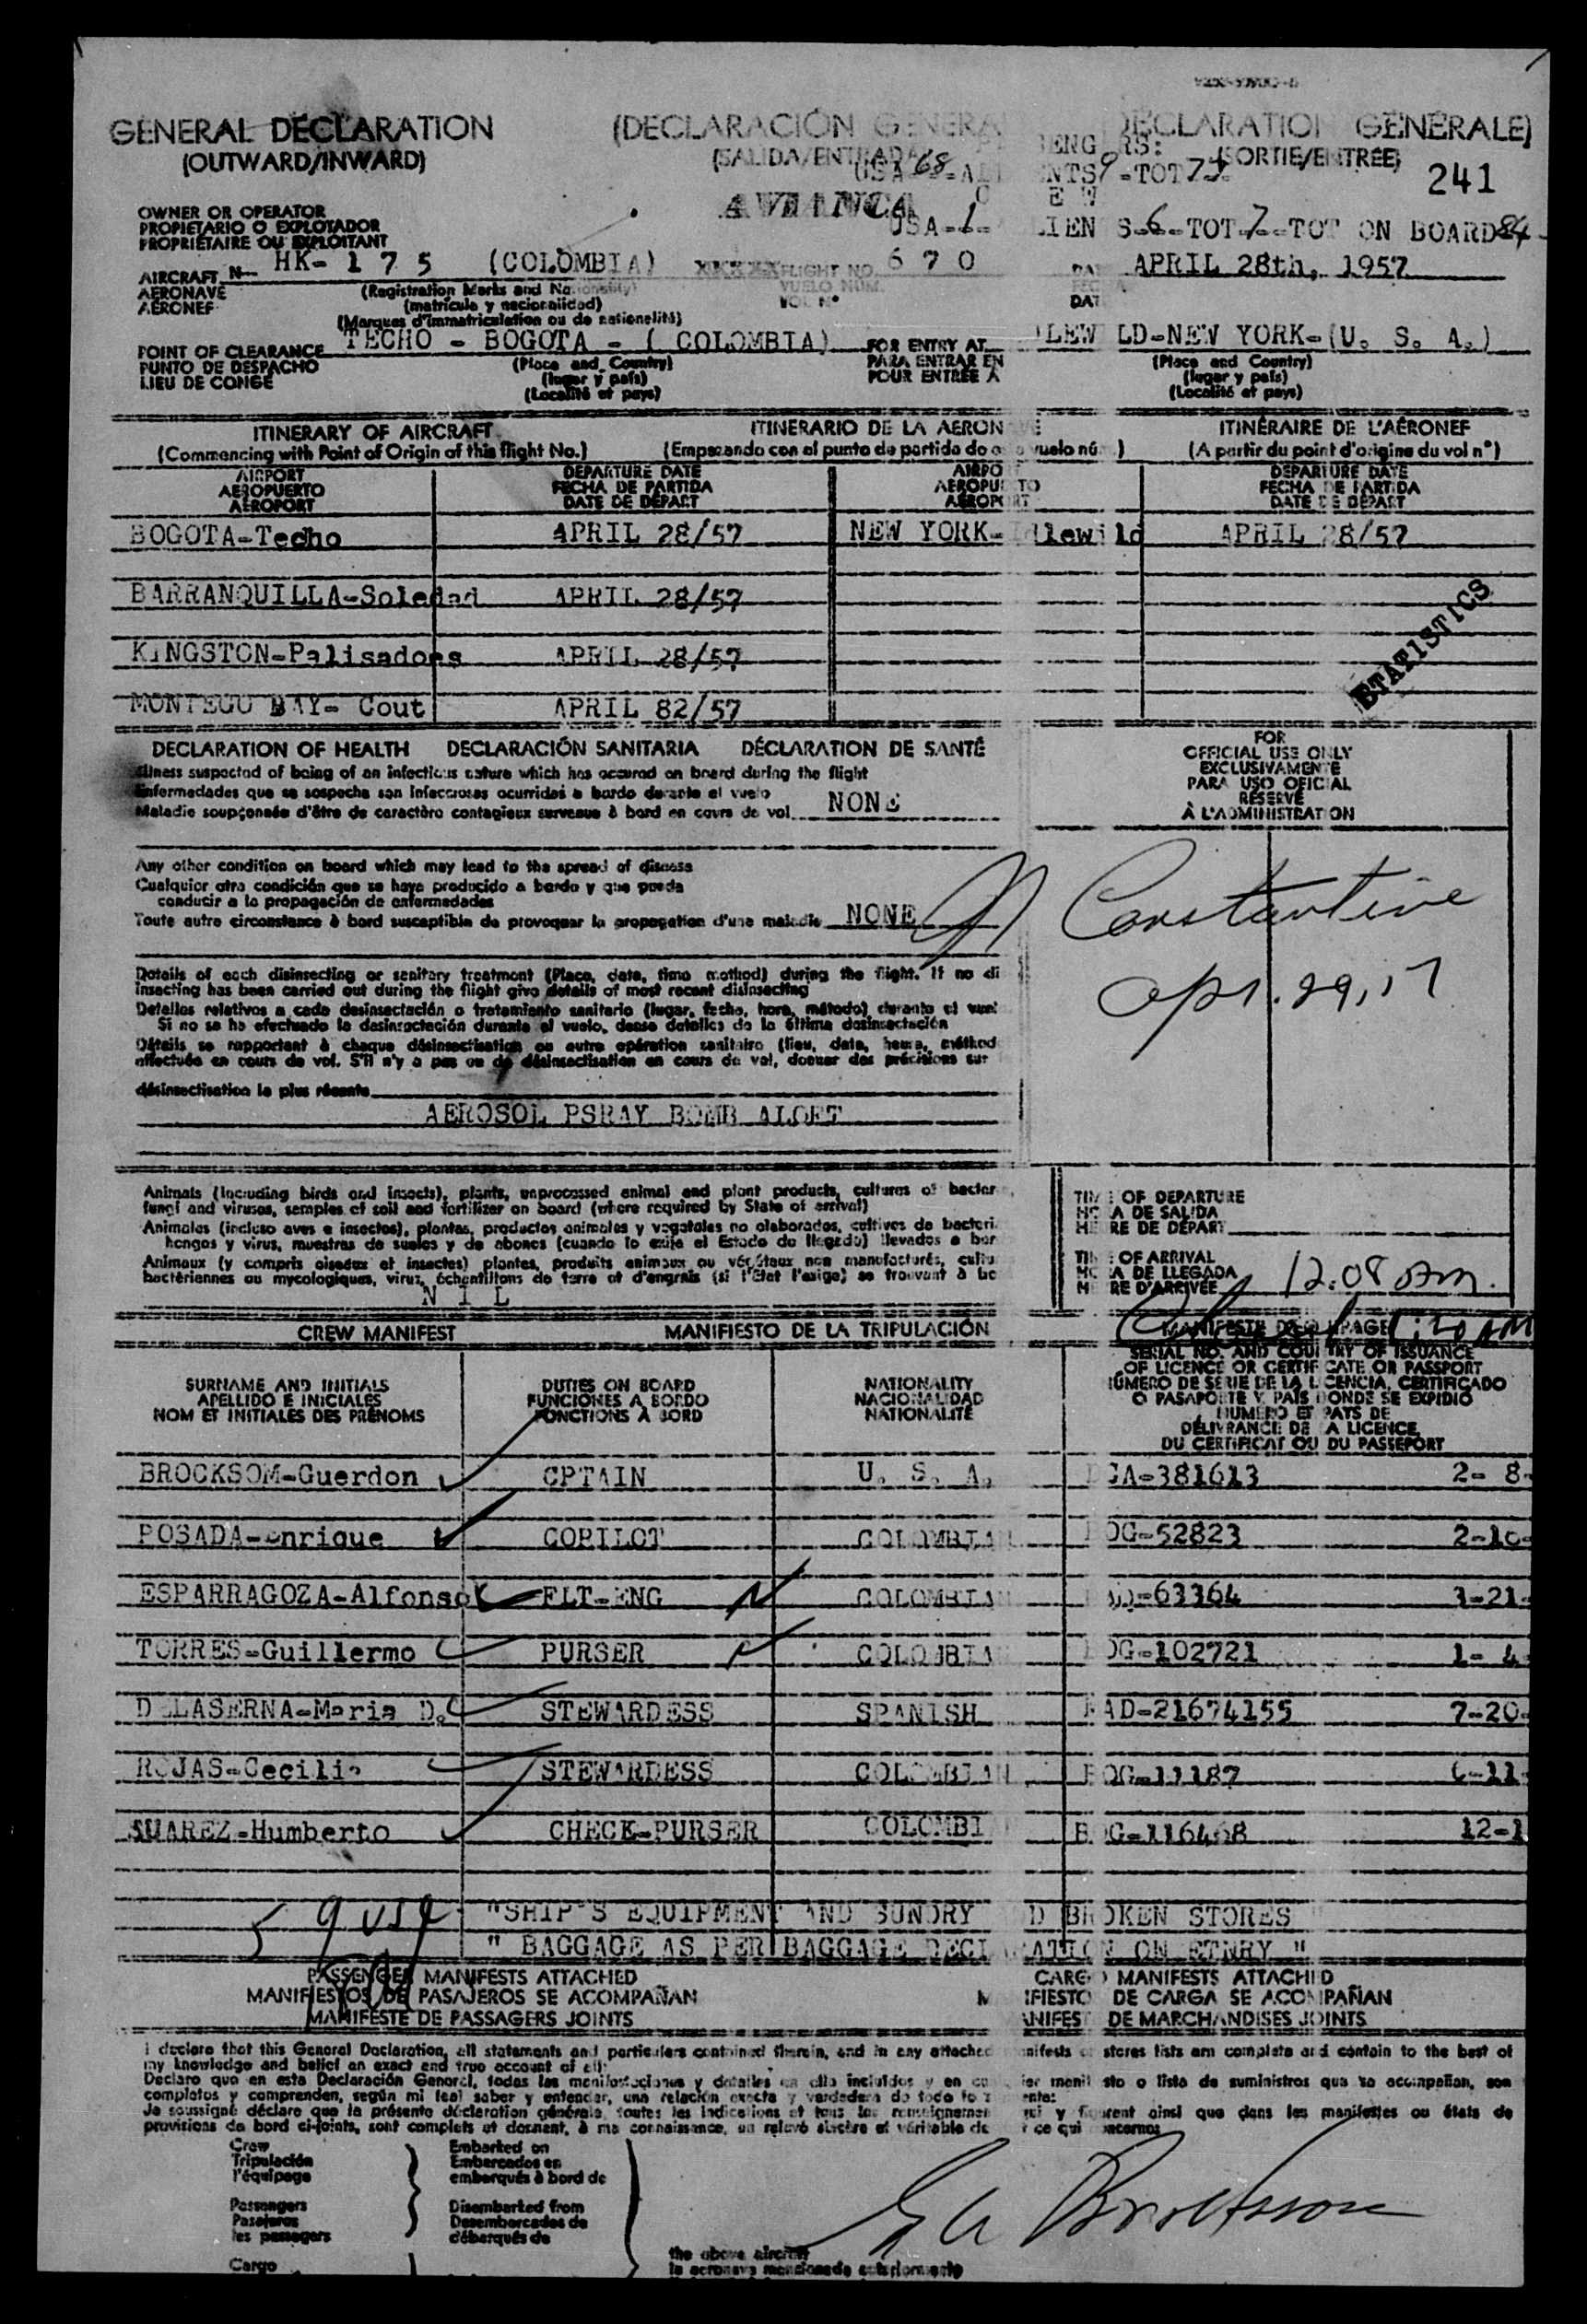 GENERAL DECLARATION (DECLARACIÓN GENERA DECLARATIO GÉNÉRALE)
(OUTWARD/INWARD) (SALIDA/ENTRADA (SORTIE/ENTRÉE)
ENG RS:
USA 68 -AL NTS 9 -TOT 241
AVIANCA
OWNER OR OPERATOR
PROPIETARIO O EXPLOTADOR
PROPRIÉTAIRE OU EXPLOITANT
USA-1- LIEN S-6--TOT-7--TOT ON BOARD 84
AIRCRAFT N HK- 1 7 5 (COLOMBIA) FLIGHT NO. 6 7 0 APRIL 28th, 1957
AERONAVE (Registration Marks and Nationality) VUELO NUM.
AÉRONEF (matrícula y nacionalidad) VOL Nº DAT
(Marques d'immatriculation ou de nationalité)
POINT OF CLEARANCE TECHO - BOGOTA - ( COLOMBIA) FOR ENTRY AT LEW LD-NEW YORK-(U. S. A.)
PUNTO DE DESPACHO (Place and Country) PARA ENTRAR EN (Place and Country)
LIEU DE CONGÉ (lugar y país) POUR ENTRÉE À (lugar y país)
(Localité et pays) (Localité et pays)
ITINERARY OF AIRCRAFT ITINERARIO DE LA AERON VE ITINÉRAIRE DE L'AÉRONEF
(Commencing with Point of Origin of this flight No.) (Empezando con el punto de partida de vuelo nú ) (A partir du point d'origine du vol n°)
AIRPORT DEPARTURE DATE AIRPO DEPARTURE DATE
AEROPUERTO FECHA DE PARTIDA AEROPU TO FECHA DE PARTIDA
AÉROPORT DATE DE DÉPART AÉROPORT DATE DE DÉPART
BOGOTA-Techo APRIL 28/57 NEW YORK-Idlewild APRIL 28/57
BARRANQUILLA-Soledad APRIL 28/57
KINGSTON-Palisadoes APRIL 28/57
STATISTICS
MONTEGO BAY- Cout APRIL 82/57
DECLARATION OF HEALTH DECLARACIÓN SANITARIA DÉCLARATION DE SANTÉ
FOR
OFFICIAL USE ONLY
EXCLUSIVAMENTE
PARA USO OFICIAL
RÉSERVÉ
À L'ADMINISTRATION
Illness suspected of being of an infectious nature which has occured on board during the flight
Enfermedades que se sospecha son infecciosas ocurridas a bordo durante el vuelo
Maladie soupçonnée d'être de caractère contagieux survenue à bord en cours de vol NONE
Any other condition on board which may lead to the spread of disease
Cualquier otra condición que se haya producido a bordo y que pueda
conducir a la propagación de enfermedades
Toute autre circonstance à bord susceptible de provoquer la propagation d'une maladie NONE
Constantine
Apr. 29, 57
Details of each disinsecting or sanitary treatment (Place, date, time method) during the flight. If no di
insecting has been carried out during the flight give details of most recent disinsecting
Detalles relativos a cada desinsectación o tratamiento sanitario (lugar, fecha, hora, método) durante el vuel
Si no se ha efectuado la desinsectación durante el vuelo, dense detalles de la última desinsectación
Détails se rapportant à chaque désinsectisation ou autre opération sanitaire (lieu, date, heure, méthod
effectuée en cours de vol. S'il n'y a pas eu de désinsectisation en cours de vol, donner des précisions sur
désinsectisation la plus récente
AEROSOL PSRAY BOMB ALOFT
Animals (including birds and insects), plants, unprocessed animal and plant products, cultures of bacter
fungi and viruses, samples of soil and fertilizer on board (where required by State of arrival)
Animales (incluso aves e insectos), plantas, productos animales y vegetales no elaborados, cultivos de bacteri
hongos y virus, muestras de suelos y de abonos (cuando lo exija el Estado de llegada) llevados a bor
Animaux (y compris oiseaux et insectes) plantes, produits animaux ou végétaux non manufacturés, cultu
bactériennes ou mycologiques, virus, échantillons de terre et d'engrais (si l'Etat l'exige) se trouvant à bo
N I L
TIME OF DEPARTURE
HORA DE SALIDA
HEURE DE DÉPART
TIME OF ARRIVAL
HORA DE LLEGADA
HEURE D'ARRIVÉE 12.08 am.
CREW MANIFEST MANIFIESTO DE LA TRIPULACIÓN MANIFESTE DE L'ÉQUIPAGE
SURNAME AND INITIALS DUTIES ON BOARD NATIONALITY
APELLIDO E INICIALES FUNCIONES A BORDO NACIONALIDAD
NOM ET INITIALES DES PRÉNOMS FONCTIONS À BORD NATIONALITÉ
SERIAL NO. AND COUNTRY OF ISSUANCE
OF LICENCE OR CERTIFICATE OR PASSPORT
NÚMERO DE SERIE DE LA LICENCIA, CERTIFICADO
O PASAPORTE Y PAÍS DONDE SE EXPIDIÓ
NUMÉRO ET PAYS DE
DÉLIVRANCE DE LA LICENCE,
DU CERTIFICAT OU DU PASSEPORT
BROCKSOM-Guerdon CPTAIN U. S. A. CA-381613 2- 8-
POSADA-Enrique COPILOT COLOMBIAN OG-52823 2-10-
ESPARRAGOZA-Alfonso FLT-ENG COLOMBIAN -63364 3-21-
TORRES-Guillermo PURSER COLOMBIA OG-102721 1- 4
DELASERNA-Maria D. STEWARDESS SPANISH AD-21674155 7-20-
ROJAS-Cecilia STEWARDESS COLOMBIAN BOG-11187 6-11-
SUAREZ-Humberto CHECK-PURSER COLOMBI B G-116468 12-1
"SHIP'S EQUIPMENT AND SUNDRY D BROKEN STORES
" BAGGAGE AS PER BAGGAGE DECLARATION ON ETNRY "
PASSENGER MANIFESTS ATTACHED CARGO MANIFESTS ATTACHED
MANIFIESTOS DE PASAJEROS SE ACOMPAÑAN M IFIESTO DE CARGA SE ACOMPAÑAN
MANIFESTE DE PASSAGERS JOINTS ANIFEST DE MARCHANDISES JOINTS
I declare that this General Declaration, all statements and particulars contained therein, and in any attached nifests o stores lists are complete and contain to the best of
my knowledge and belief an exact and true account of all:
Declaro que en esta Declaración General, todas las manifestaciones y detalles en ella incluidos y en cu ier manifi sto o lista de suministros que se acompañan, son
completos y comprenden, según mi leal saber y entender, una relación exacta y verdadera de todo lo
Je soussigné déclare que la présente déclaration générale, toutes les indications et tous les renseignemen qui y figurent ainsi que dans les manifestes ou états de
provisions de bord ci-joints, sont complets et donnent, à ma connaissance, un relevé sincère et véritable de ce qui concerne:
Crew Embarked on
Tripulación Embarcados en
l'équipage embarqués à bord de
Passengers Disembarked from
Pasajeros Desembarcados de
les passagers débarqués de
Cargo the above aircraft
la aeronave mencionada anteriormente